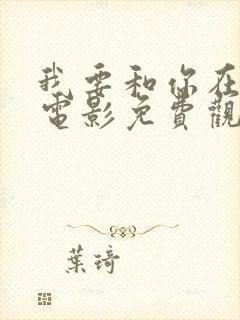 我要和你在
電影免費觀
葉琦